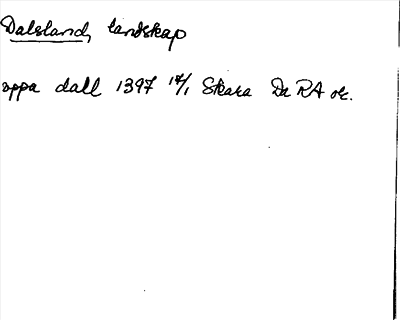 Dalsland, landskap
oppa dall 1397 17/1 Skara Da RA or.